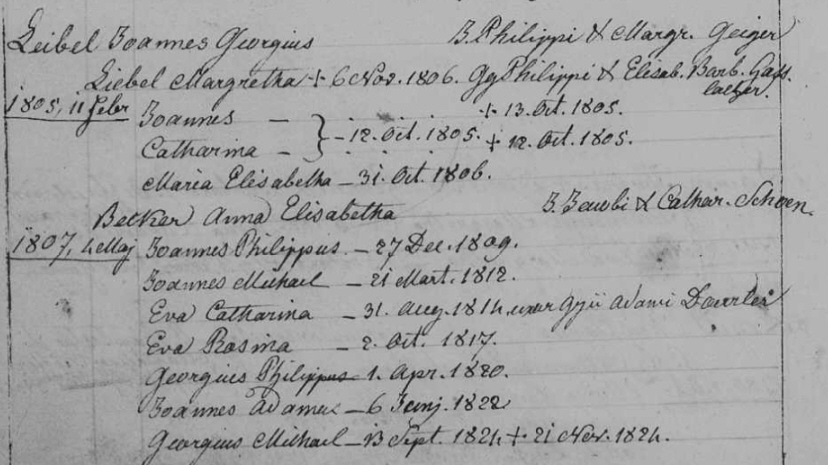 Leibel Joannes Georgius J. Philippi & Margr. Geiger
Liebel Margretha + 6 Nov. 1806. Gg Philippi & Elisab. Barb.
1805, 11 Febr
Joannes — + 13. Oct. 1805.
— 12. Oct. 1805.
Catharina — + 12. Oct. 1805.
Maria Elisabetha — 31. Oct. 1806.
Becker Anna Elisabetha J. Jacobi & Cathar. Schoen.
1807, 4 Maj Joannes Philippus — 27 Dec. 1809.
Joannes Michael — 21 Mart. 1812.
Eva Catharina — 31. Aug. 1814, uxor Adami
Eva Rosina — 2. Oct. 1817.
Georgius Philippus 1. Apr. 1820.
Joannes Adamus — 6 Junj. 1822
Georgius Michael — 13 Sept. 1824 + 21 Nov. 1824.